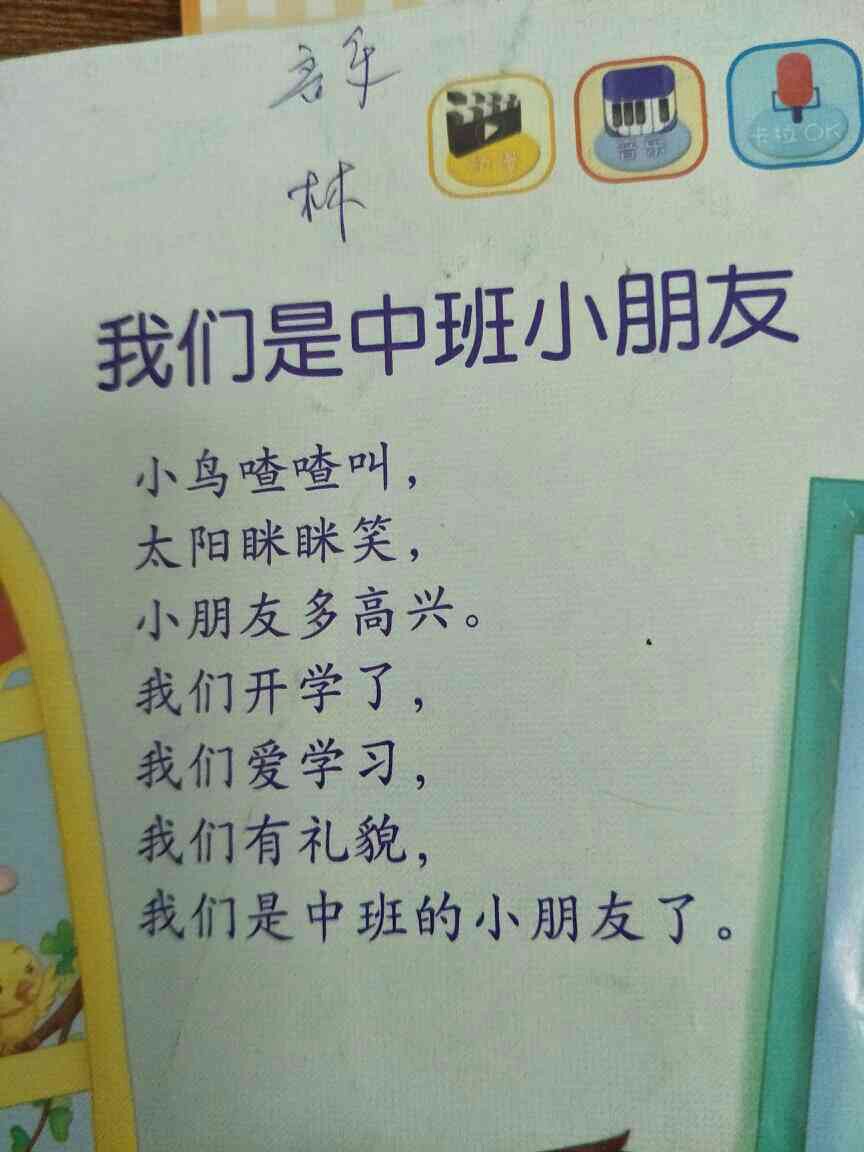 林
卡拉OK
我们是中班小朋友
小鸟喳喳叫，
太阳眯眯笑，
小朋友多高兴。
我们开学了，
我们爱学习，
我们有礼貌，
我们是中班的小朋友了。